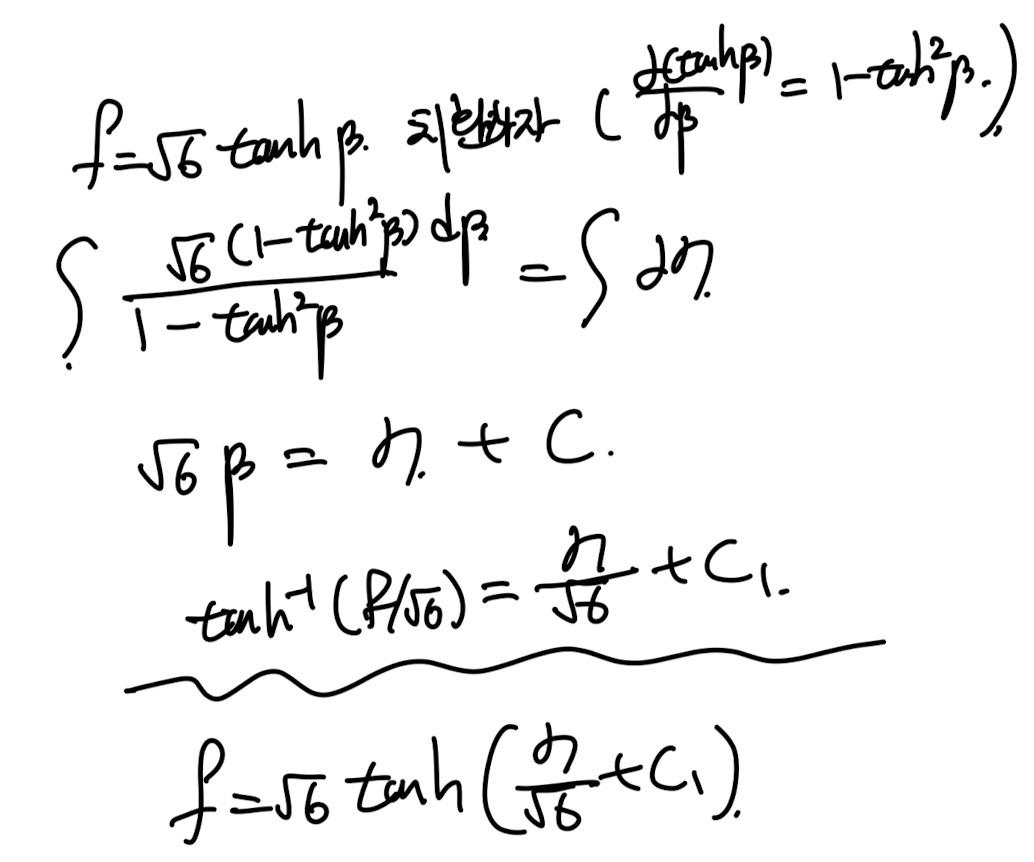 f=√6 tanh β. 치환하자 ( d(tanhβ)/dβ = 1-tanh²β.)
∫ √6 (1-tanh²β) dβ / 1 - tanh²β = ∫ dη.
√6 β = η. + C.
tanh⁻¹ (f/√6) = η/√6 + C₁.
f=√6 tanh (η/√6 + C₁).